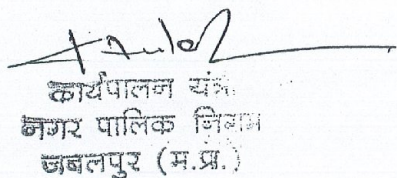 कार्यपालन यंत्री
नगर पालिक निगम
जबलपुर (म.प्र.)